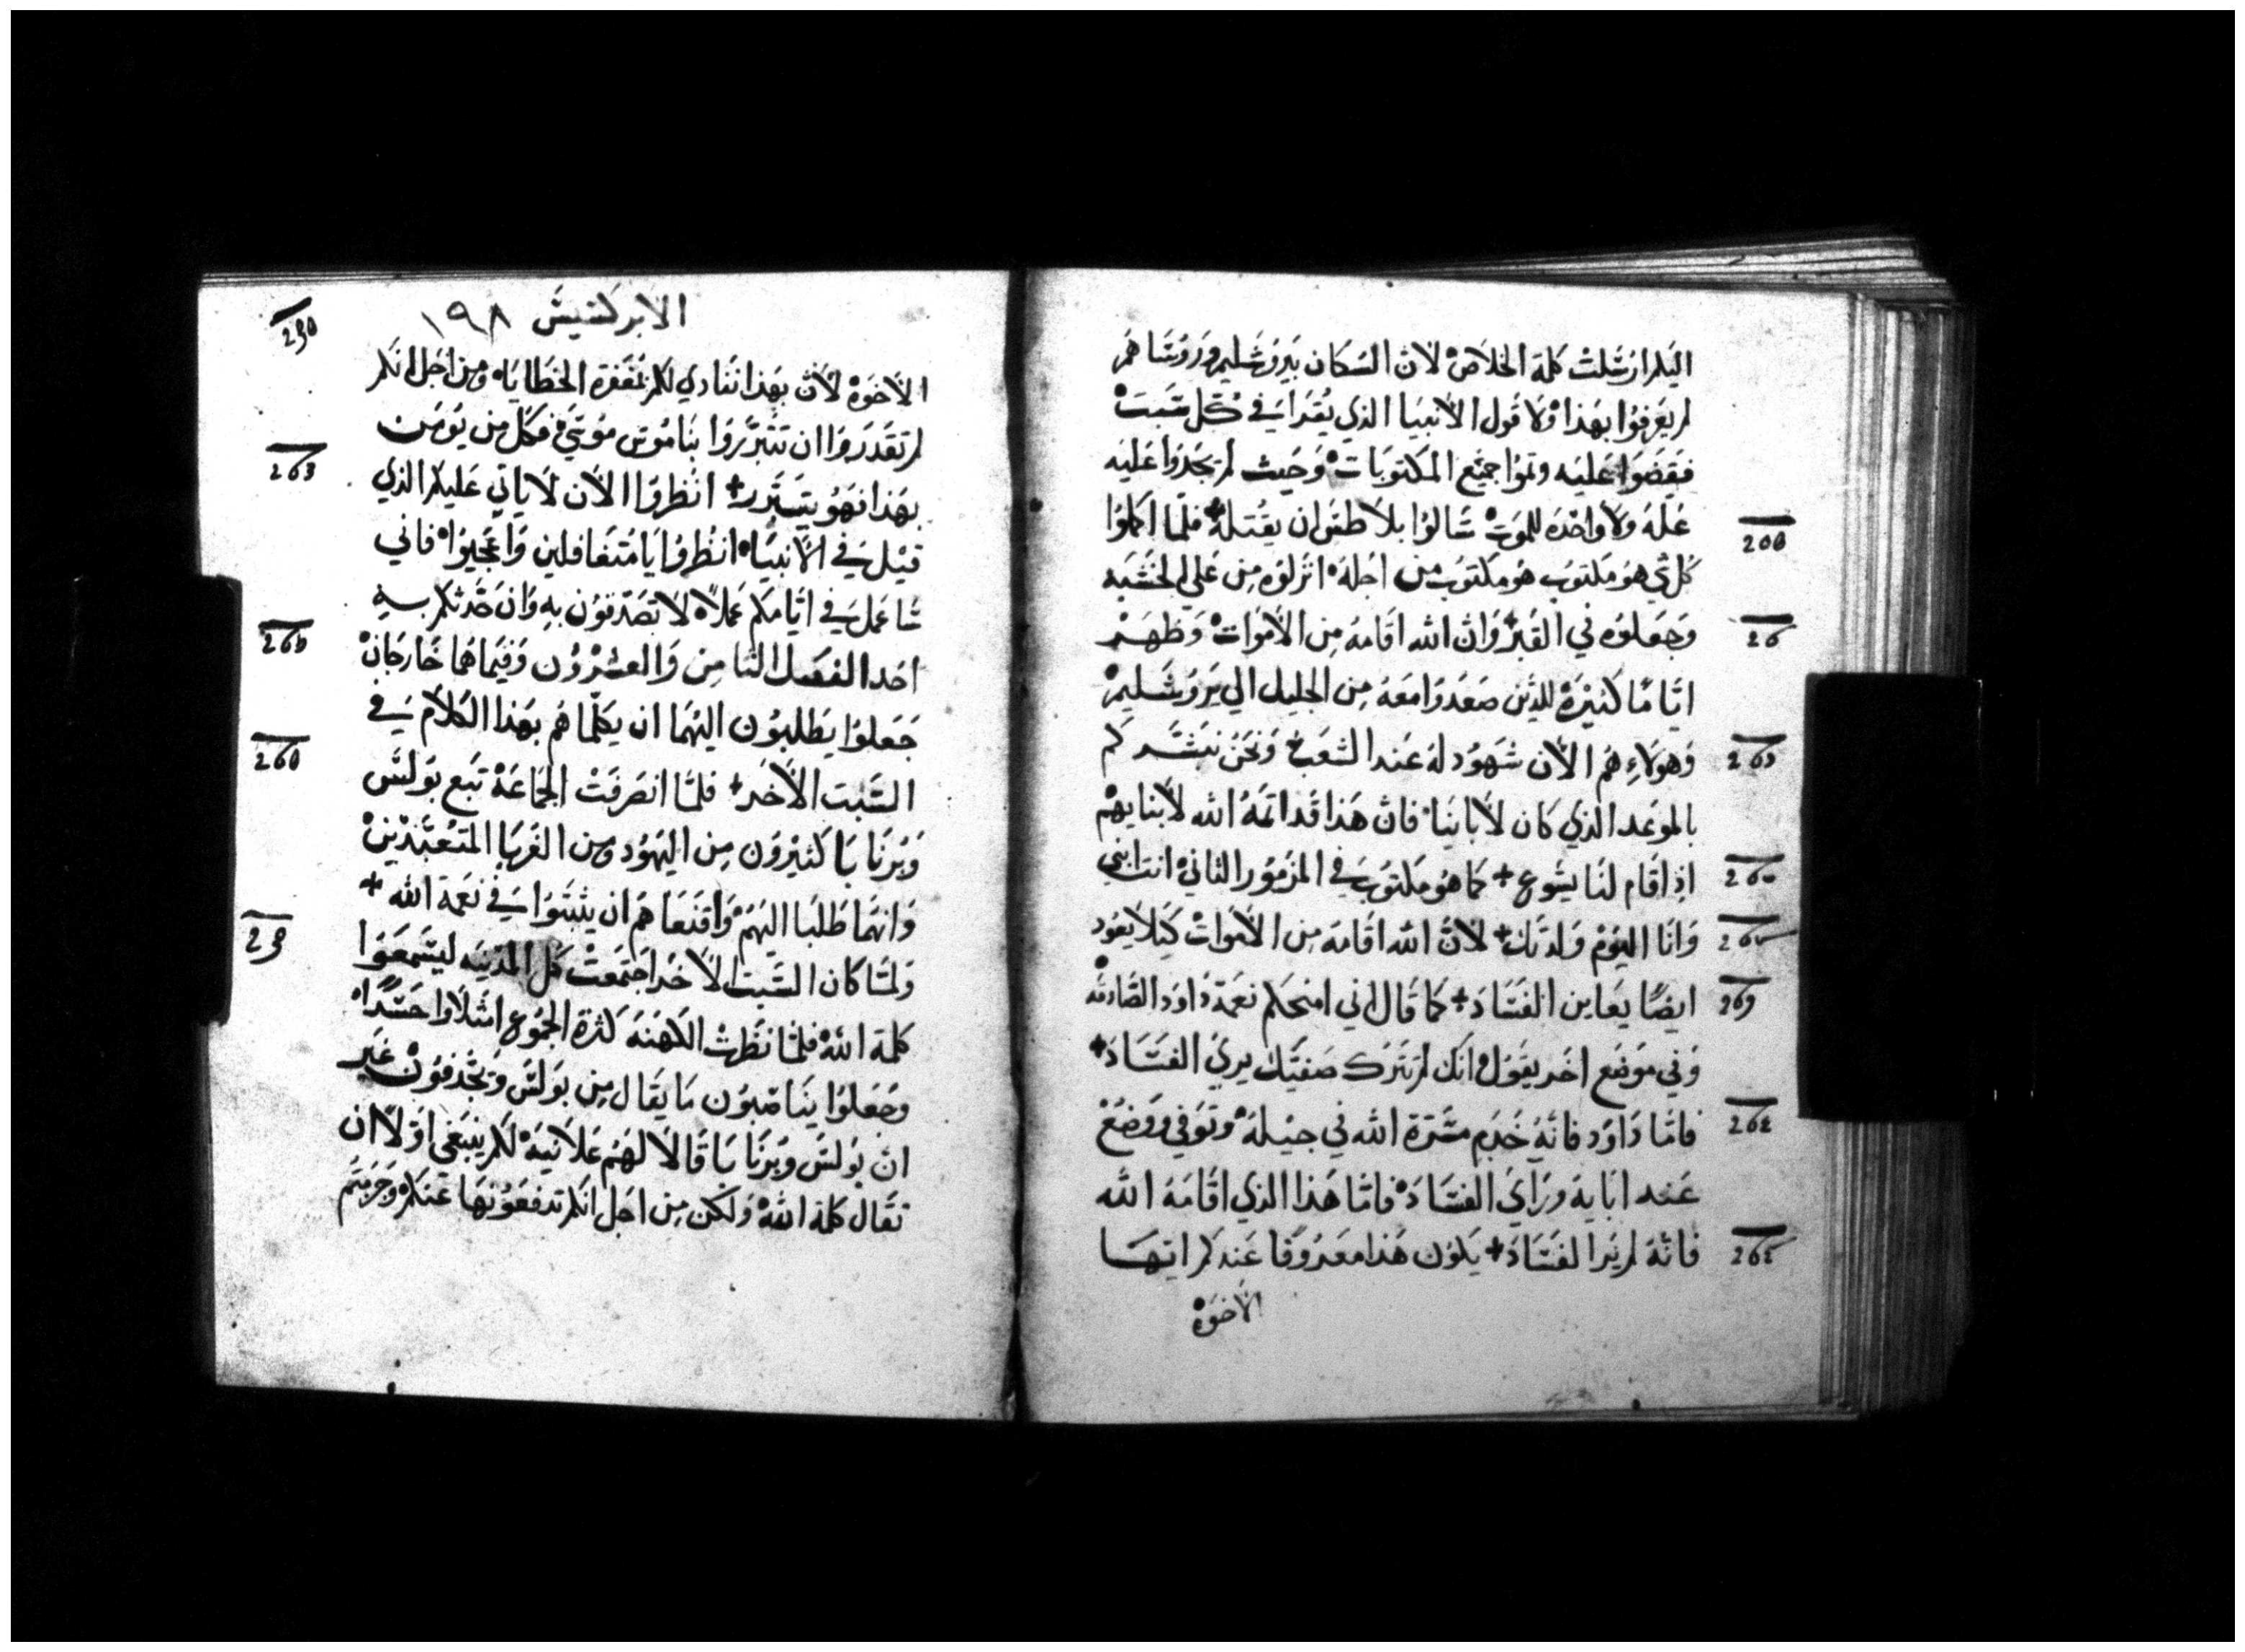 اليكم ارسلت كلمة الخلاص لان السكان بيروشليم وروساهم
لم يعرفوا بهذا ولا قول الانبيا الذي يقرا في كل سبت
فقضوا عليه وتموا جميع المكتوبات وحيث لم يجدوا عليه
علة ولا واحدة للموت سالوا بيلاطس ان يقتله + فلما اكملوا
كل شي هو مكتوب هو مكتوب من اجله انزلوه من علي الخشبه
وجعلوه في القبر + وان الله اقامه من الاموات وظهر
اياما كثيرة للذين صعدوا معه من الجليل الي يروشليم
وهولاء هم الان شهود له عند الشعب ونحن نبشركم
بالموعد الذي كان لاباينا فان هذا قد اتمه الله لابنايهم
اذ اقام لنا يسوع + كما هو مكتوب في المزمور الثاني انت ابني
وانا اليوم ولدتك + لان الله اقامه من الاموات كيلا يعود
ايضا يعاين الفساد + كما قال اني امنحكم نعمة داود الصادقه
وفي موضع اخر يقول انك لم تترك صفيك يري الفساد +
فاما داود فانه خدم مسرة الله في جيله وتوفي ووضع
عند ابايه وراي الفساد فاما هذا الذي اقامه الله
فانه لم ير الفساد + يكون هذا معروفا عندكم ايها
الاخوة
الابركسيس ١٩٨
الاخوة لان بهذا ننادي لكم بمغفرة الخطايا ومن اجل انكم
لم تقدروا ان تتبرروا بناموس موسي فكل من يومن
بهذا فهو يتبرر + انظروا الان لا ياتي عليكم الذي
قيل في الانبيا انظروا يا متغافلين واعجبوا فاني
ساعمل في ايامكم عملا لا تصدقون به وان حدثكم به
احد الفصل الثامن والعشرون وفيما هما خارجان
جعلوا يطلبون اليهما ان يكلماهم بهذا الكلام في
السبت الاخر + فلما انصرفت الجماعة تبع بولس
وبرنابا كثيرون من اليهود ومن الغربا المتعبدين
وانهما طلبا اليهم واقنعاهم ان يثبتوا في نعمة الله +
ولما كان السبت الاخر اجتمعت كل المدينه ليسمعوا
كلمة الله فلما نظرت الكهنه كثرة الجموع امتلاوا حسدا
وجعلوا يناصبون ما يقال من بولس ويجدفون غير
ان بولس وبرنابا قالا لهم علانية لكم ينبغي اولا ان
تقال كلمة الله ولكن من اجل انكم تدفعونها عنكم وجزمتم